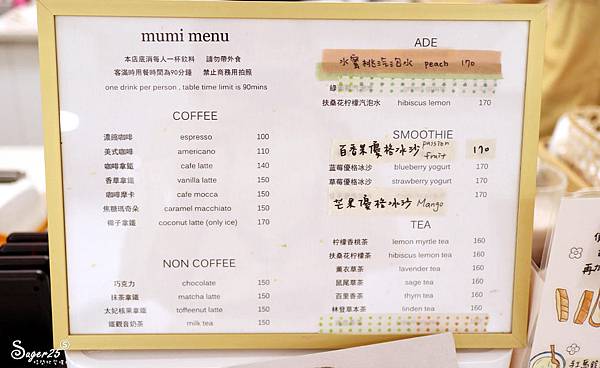 mumi menu
本店底消每人一杯飲料 請勿帶外食
客滿時用餐時間為90分鐘 禁止商務用拍照
one drink per person , table time limit is 90mins
COFFEE
濃縮咖啡 espresso 100
美式咖啡 americano 110
咖啡拿鐵 cafe latte 140
香草拿鐵 vanilla latte 150
咖啡摩卡 cafe mocca 150
焦糖瑪奇朵 caramel macchiato 150
椰子拿鐵 coconut latte (only ice) 170
NON COFFEE
巧克力 chocolate 150
抹茶拿鐵 matcha latte 150
太妃核果拿鐵 toffeenut latte 150
鐵觀音奶茶 milk tea 150
ADE
水蜜桃汽泡水 peach 170
綠
扶桑花檸檬汽泡水 hibiscus lemon 170
SMOOTHIE
百香果優格冰沙 passion fruit 170
蓝莓優格冰沙 blueberry yogurt 170
草莓優格冰沙 strawberry yogurt 170
芒果優格冰沙 Mango
TEA
檸檬香桃茶 lemon myrtle tea 160
扶桑花檸檬茶 hibiscus lemon tea 160
薰衣草茶 lavender tea 160
鼠尾草茶 sage tea 160
百里香茶 thym tea 160
林登草本茶 linden tea 160
Suger25